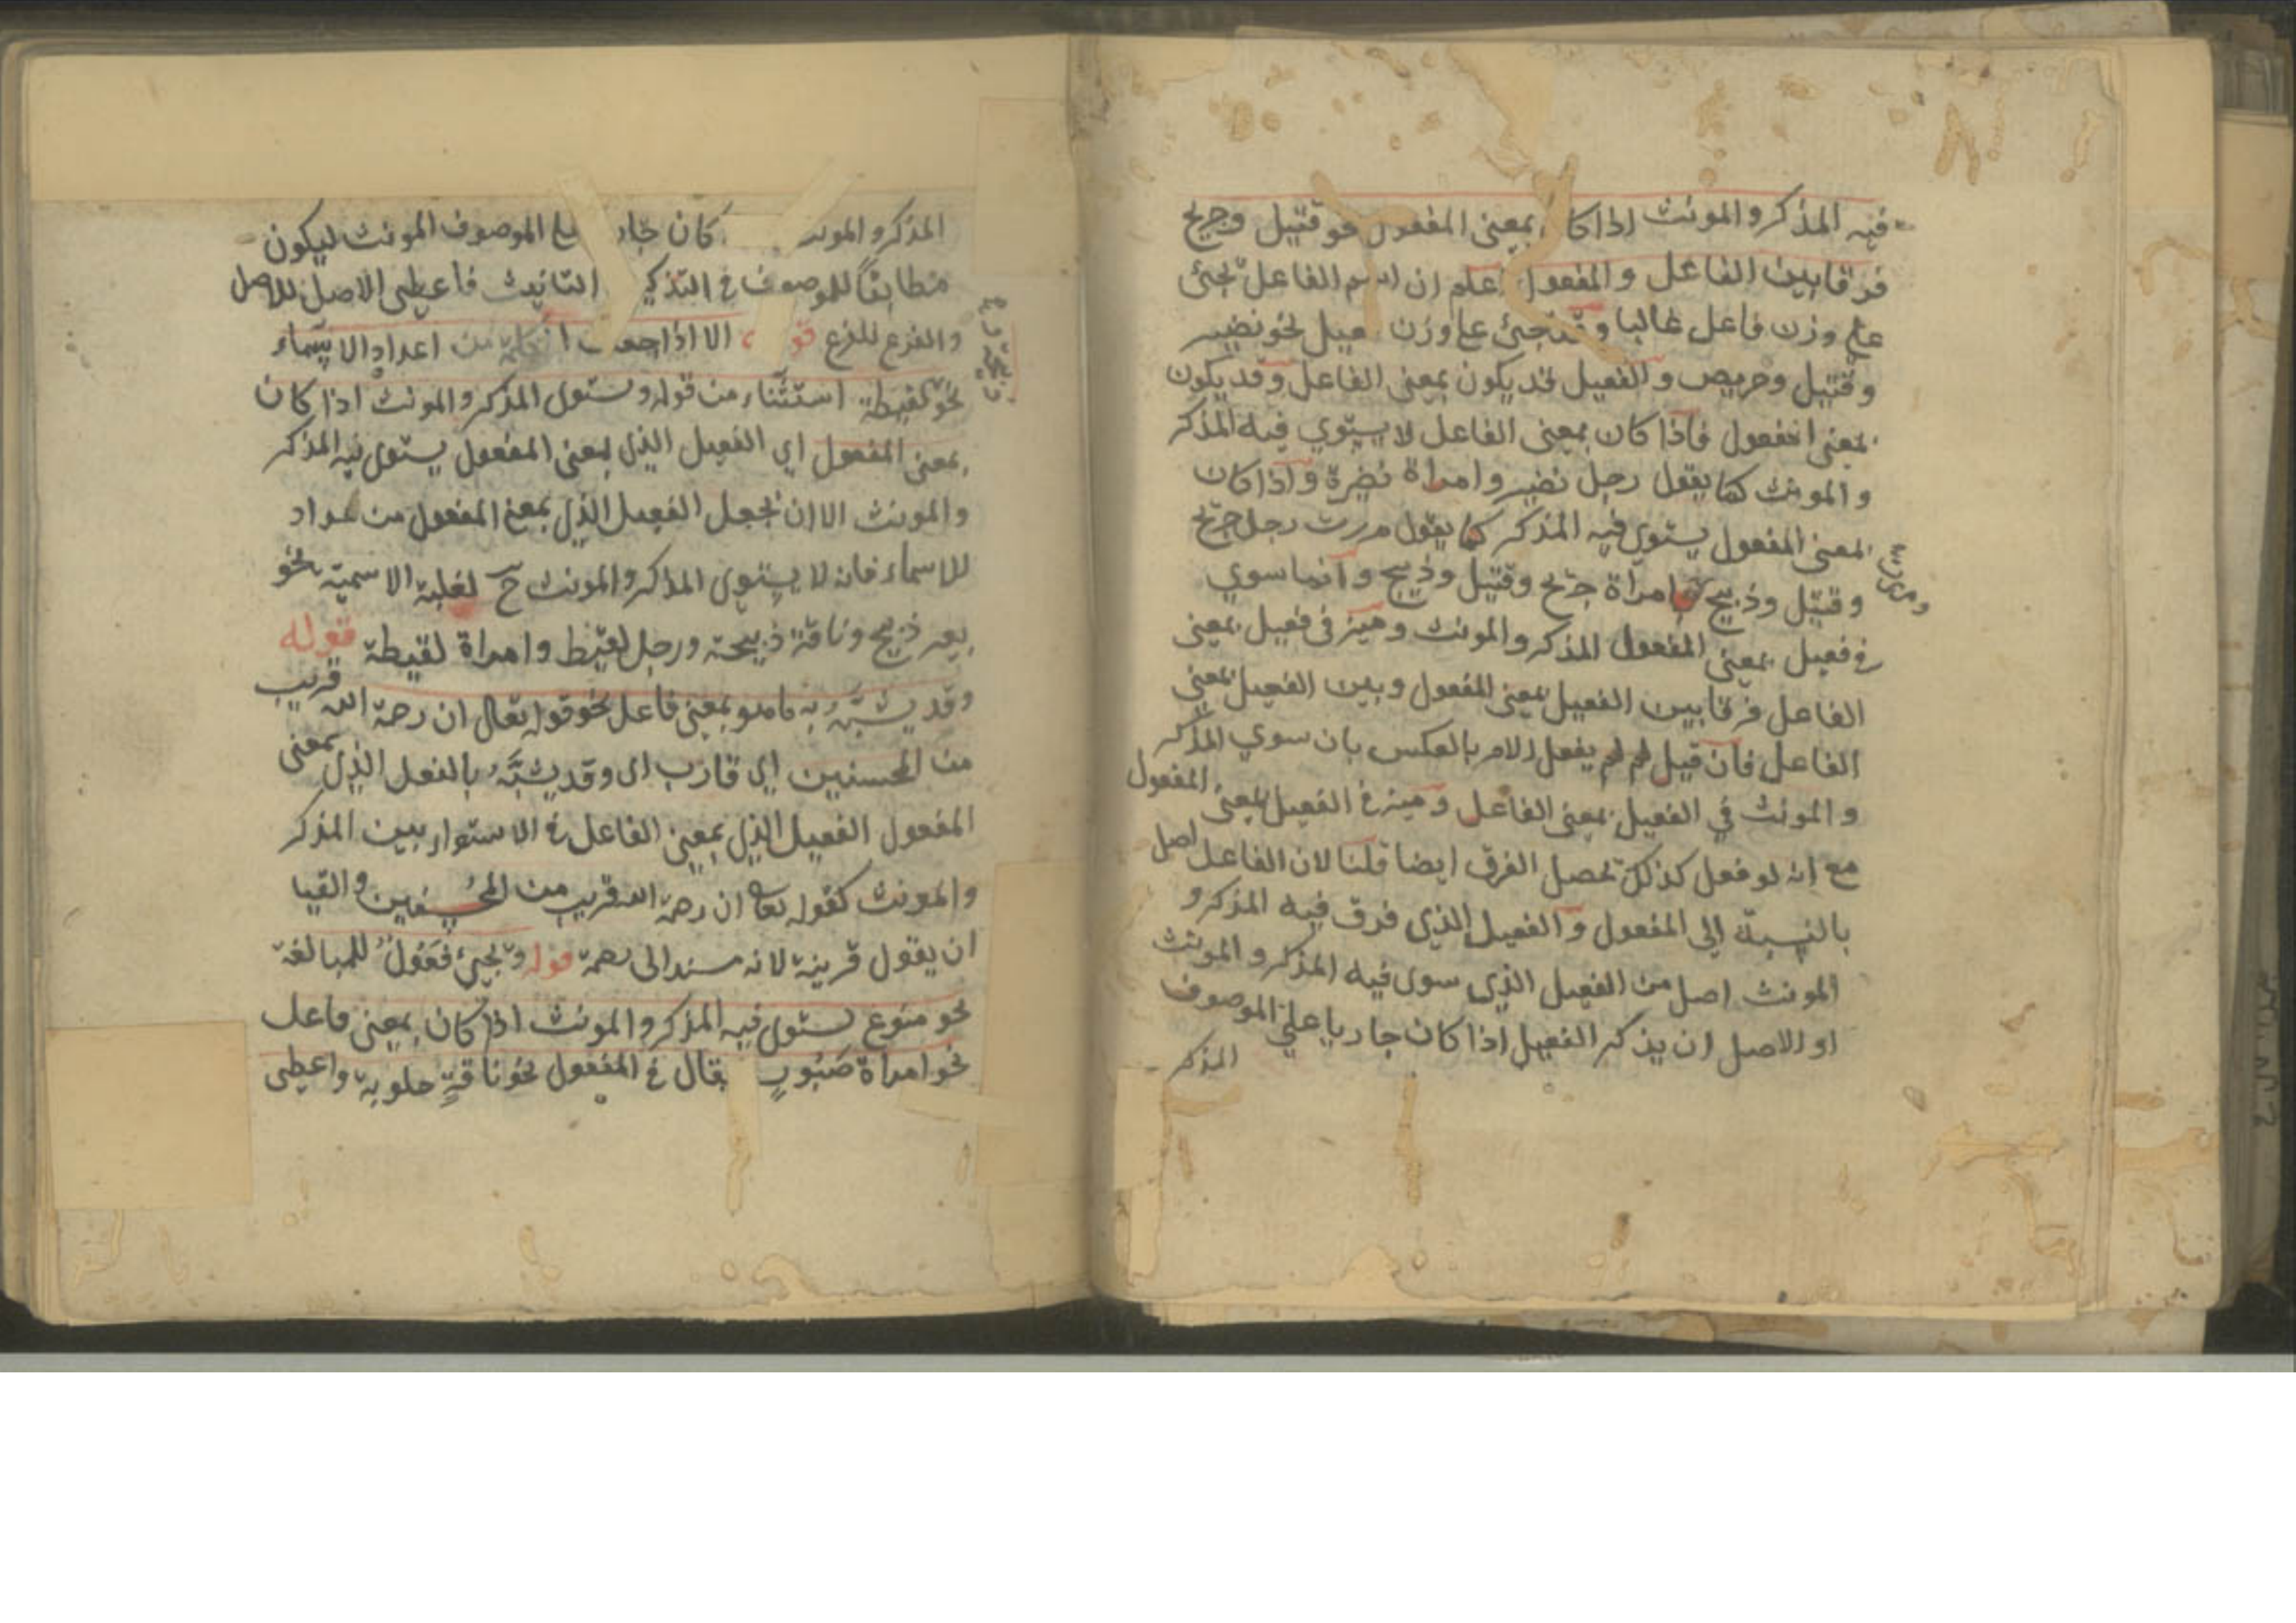 فيه المذكر والمونث اذا كا بمعنى المفعول نحو قتيل وجريح
فرقا بين الفاعل والمفعول اعلم ان اسم الفاعل تجئ
علي وزن فاعل غالبا وقد تجئ علي وزن فعيل نحو نضير
وقتيل وحريص والفعيل قد يكون بمعنى الفاعل وقد يكون
بمعنى المفعول فاذا كان بمعنى الفاعل لا يستوي فيه المذكر
والمونث كما يقول رجل نضير وامراة نضيرة واذا كان
بمعنى المفعول يستوي فيه المذكر كما يقول مررت رجل جريح
وقتيل وذبيح وامراة جريح وقتيل وذبيح وانما سوي
في فعيل بمعنى المفعول المذكر والمونث وميز في فعيل بمعنى
الفاعل فرقا بين الفعيل بمعنى المفعول وبين الفعيل بمعنى
الفاعل فان قيل لم لم يفعل الامر بالعكس بان سوي المذكر
والمونث في الفعيل بمعنى الفاعل وميز في الفعيل بمعنى المفعول
مع انه لو فعل كذلك تحصل الفرق ايضا قلنا لان الفاعل اصل
بالنسبة الي المفعول والفعيل الذي فرق فيه المذكر و
المونث اصل من الفعيل الذي سوى فيه المذكر والمونث
او الاصل ان يذكر الفعيل اذا كان جاريا علي الموصوف
المذكر
المذكر والمونث كان جار علي الموصوف المونث ليكون
مطابقا للموصوف في التذكير التانيث فاعطى الاصل للاصل
والفرع للفرع قوله الا اذا جعلت الكلمة من اعداد الاسماء
نحو لقيطة استثناء من قوله ويستوى المذكر والمونث اذا كان
بمعنى المفعول اي الفعيل الذي بمعنى المفعول يستوى فيه المذكر
والمونث الا ان يجعل الفعيل الذي بمعنى المفعول من عداد
للاسماء فانه لا يستوى المذكر والمونث ح لغلبة الاسمية نحو
بعير ذبيح وناقة ذبيحة ورجل لقيط وامراة لقيطة قوله
وقد يشبّه به ما هو بمعنى فاعل نحو قوله تعالى ان رحمة الله قريب
من المحسنين اي قارب اى وقد يشبّه بالفعل الذي بمعنى
المفعول الفعيل الذي بمعنى الفاعل في الاستواء بين المذكر
والمونث كقوله تعا ان رحمة الله قريب من المحسنين والقيا
ان يقول قريبة لانه مسند الى رحمة قوله وتجئ فَعُولٌ للمبالغة
نحو منوع يستوى فيه المذكر والمونث اذا كان بمعنى فاعل
نحو امراة صَبُورٍ يقال في المفعول نحو ناقةٍ حلوبة واعطى